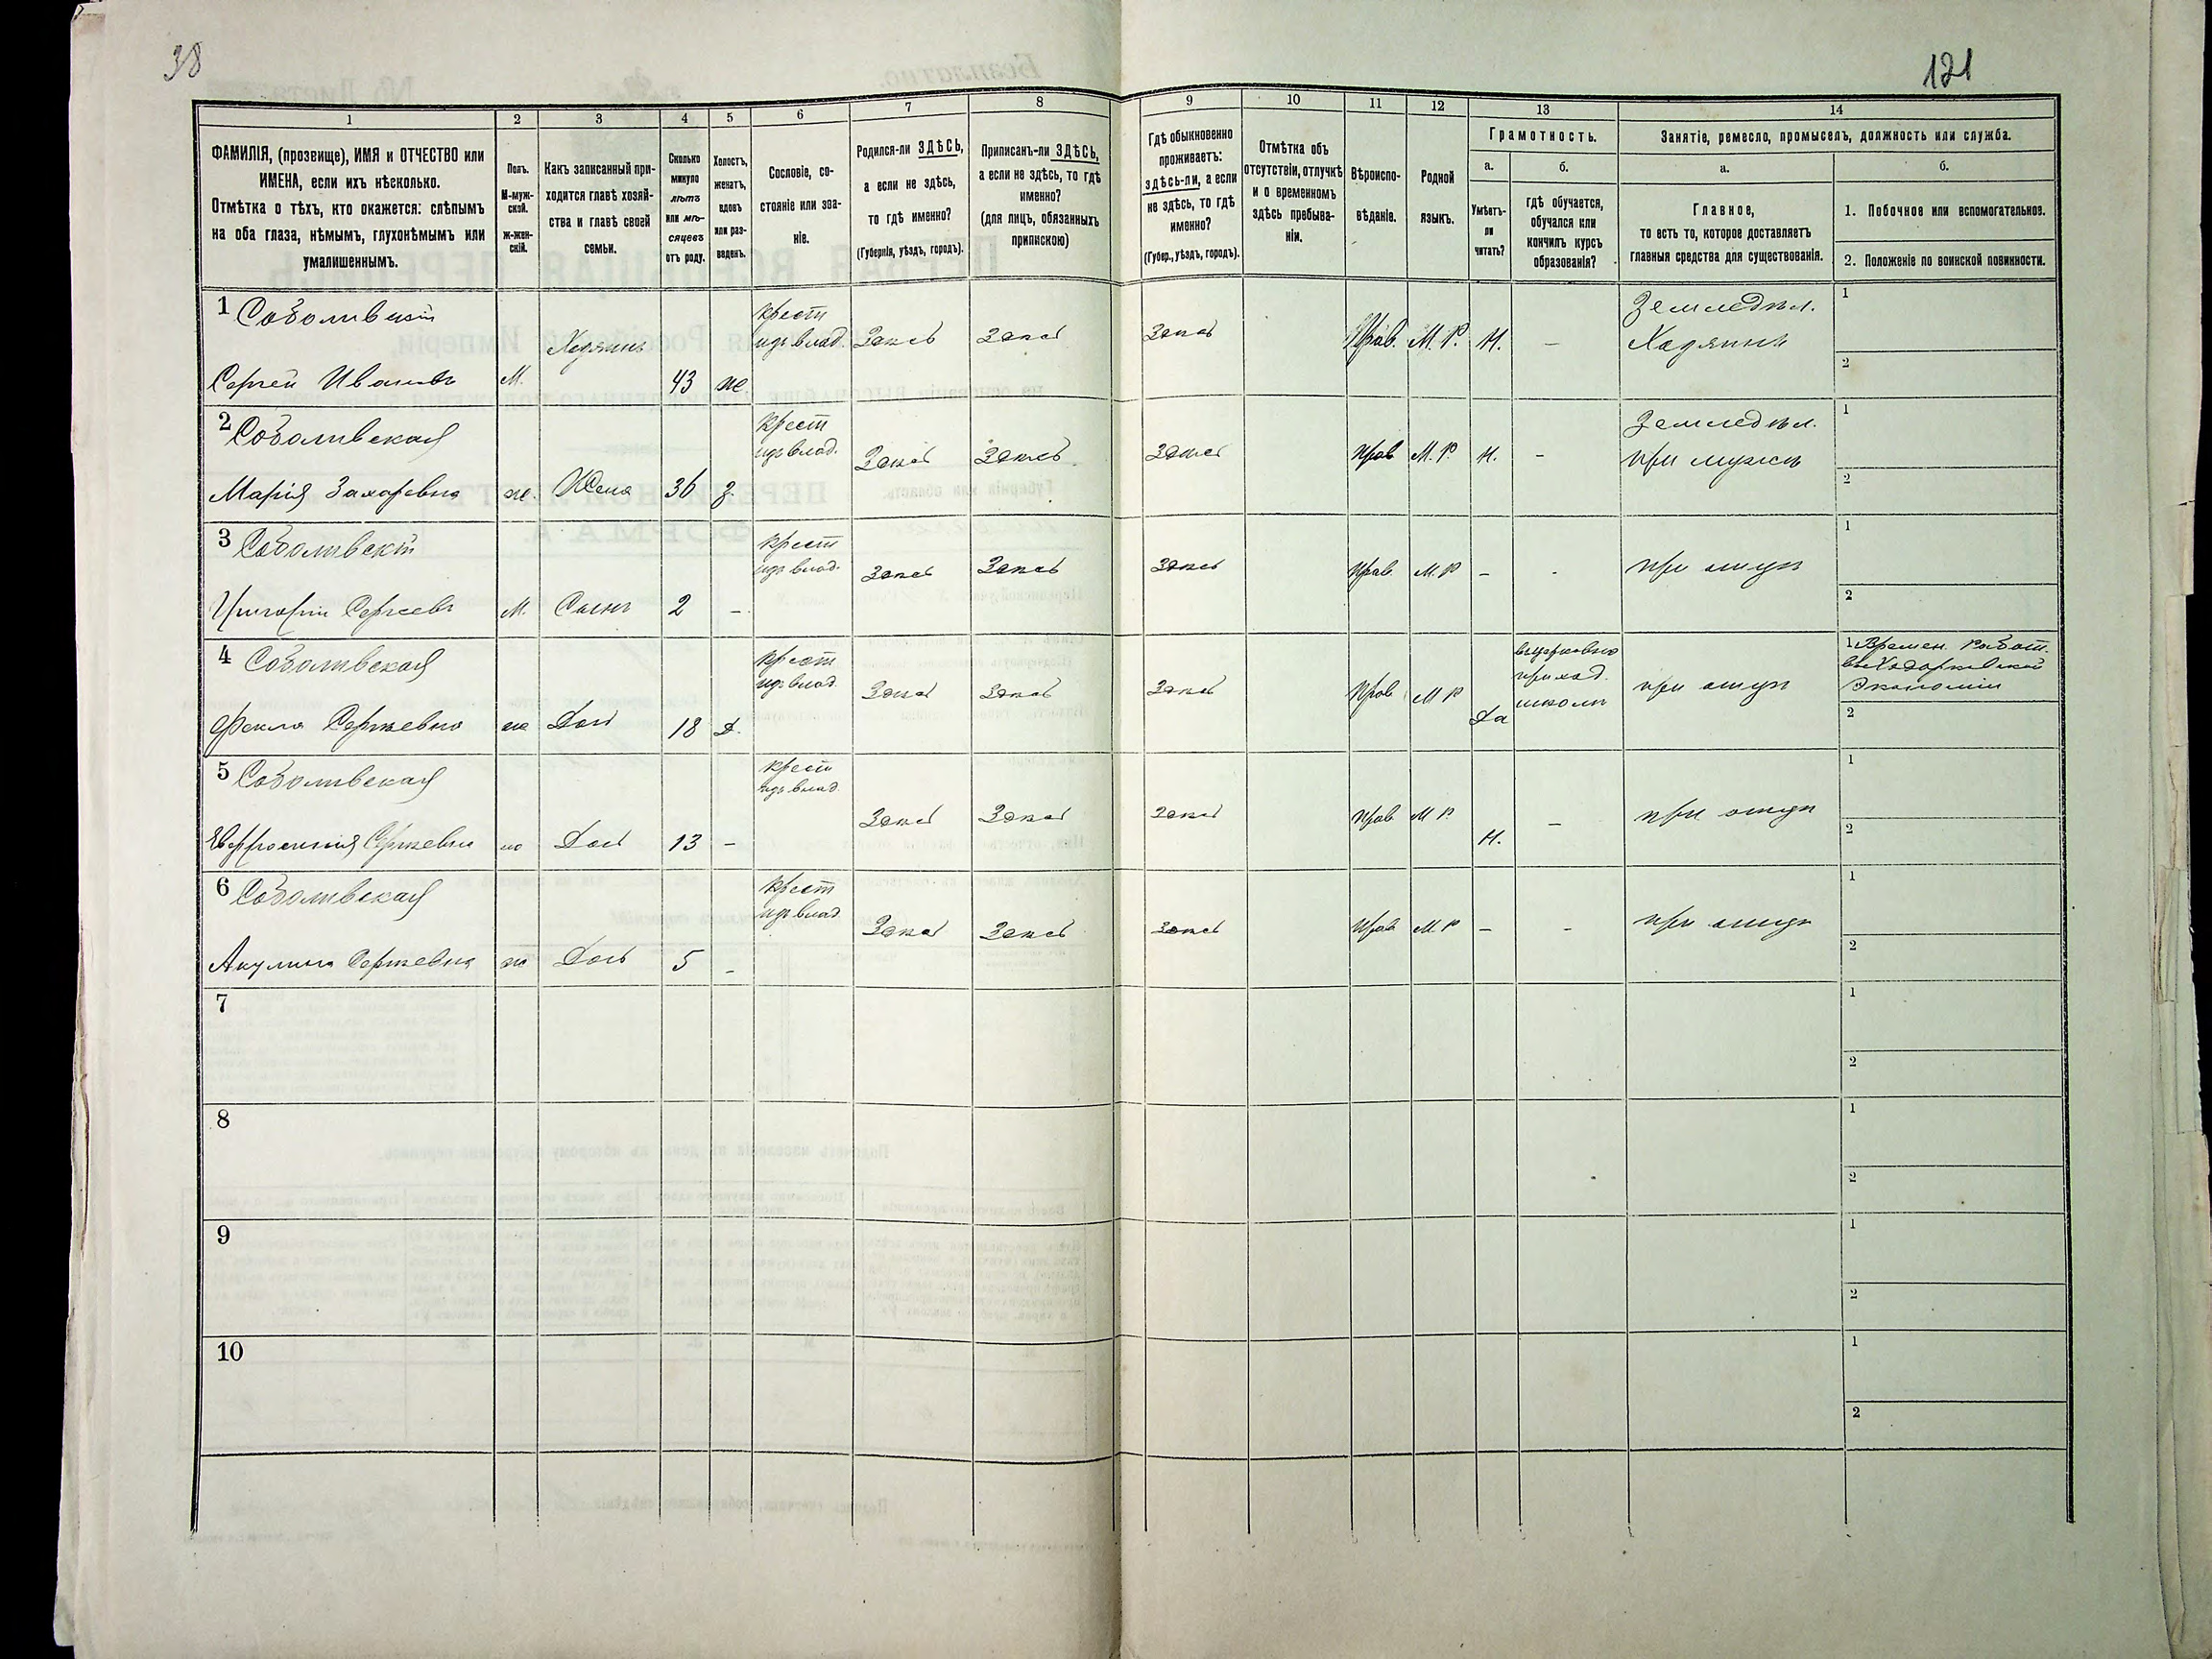 38
121
1
2
3
4
5
6
7
8
9
10
11
12
13
14
ФАМИЛІЯ, (прозвище), ИМЯ и ОТЧЕСТВО или
ИМЕНА, если ихъ нѣсколько.
Отмѣтка о тѣхъ, кто окажется: слѣпымъ
на оба глаза, нѣмымъ, глухонѣмымъ или
умалишеннымъ.
Полъ.
М-муж-
ской.
Ж-жен-
скій.
Какъ записанный при-
ходится главѣ хозяй-
ства и главѣ своей
семьи.
Сколько
минуло
лѣтъ
или мѣ-
сяцевъ
отъ роду.
Холостъ,
женатъ,
вдовъ
или раз-
веденъ.
Сословіе, со-
стояніе или зва-
ніе.
Родился-ли ЗДѢСЬ,
а если не здѣсь,
то гдѣ именно?
(Губернія, уѣздъ, городъ).
Приписанъ-ли ЗДѢСЬ,
а если не здѣсь, то гдѣ
именно?
(для лицъ, обязанныхъ
припискою)
Гдѣ обыкновенно
проживаетъ:
здѣсь-ли, а если
не здѣсь, то гдѣ
именно?
(Губер., уѣздъ, городъ).
Отмѣтка объ
отсутствіи, отлучкѣ
и о временномъ
здѣсь пребыва-
ніи.
Вѣроиспо-
вѣданіе.
Родной
языкъ.
Грамотность.
а.
Умѣетъ-
ли
читать?
б.
гдѣ обучается,
обучался или
кончилъ курсъ
образованія?
Занятіе, ремесло, промыселъ, должность или служба.
а.
Главное,
то есть то, которое доставляетъ
главныя средства для существованія.
б.
1. Побочное или вспомогательное.
2. Положеніе по воинской повинности.
1 Соболивскій
Сергей Ивановъ М. Хозяинъ 43 же
крест
изъ влад. Здѣсь Здѣсь Здѣсь Прав. М. Р. Н. —
Земледѣл.
Хозяинъ
1
2
2 Соболивская
Марія Захаровна же. Жена 36 з.
крест
изъ влад. Здѣсь Здѣсь Здѣсь Прав М. Р. Н. -
Земледѣл.
при мужѣ
1
2
3 Соболивскій
Григорій Сергеевъ М. Сынъ 2 -
крест
изъ влад. Здѣсь Здѣсь Здѣсь Прав. М. Р - -
при отцѣ
1
2
4 Соболивская
Фекла Сергѣевна же Доч 18 Д.
крест
изъ влад. Здѣсь Здѣсь Здѣсь Прав М Р Да
въ церковно
приход.
школѣ
при отцѣ
1 Времен. работ.
въ Ходорковской
Экономіи
2
5 Соболивская
Евфросинія Сергѣевна же Доч 13 -
крест
изъ влад. Здѣсь Здѣсь Здѣсь Прав М Р. Н. —
при отцѣ
1
2
6 Соболивская
Акулина Сергѣевна же Доч 5 -
крест
изъ влад. Здѣсь Здѣсь Здѣсь Прав М Р - -
при отцѣ
1
2
7
1
2
8
1
2
9
1
2
10
1
2